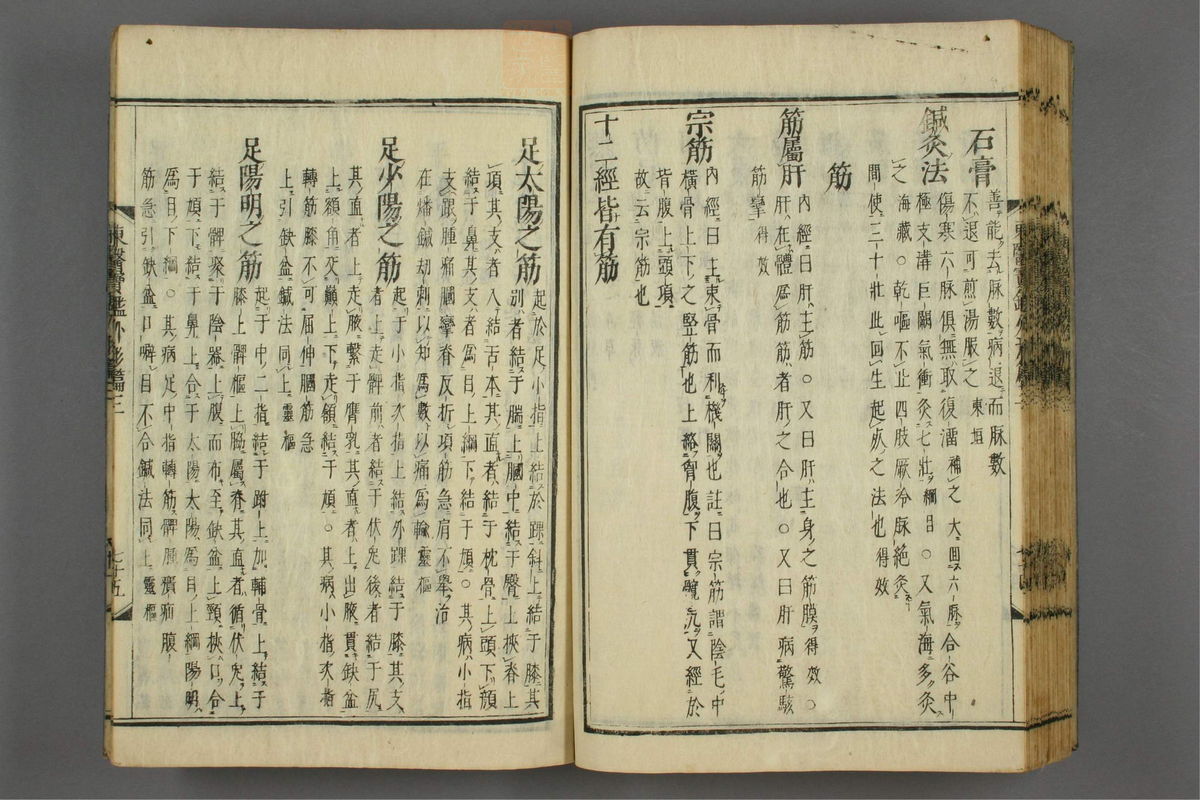 石膏 善能去脉數病退而脉數
不退可煎湯服之 東垣
鍼灸法 傷寒六脉俱無取復溜補之大回六脉合谷中
極支溝巨闕氣衝灸七壯 綱目 ○又氣海多灸
之 海藏 ○乾嘔不止四肢厥冷脉絶灸
間使三十壯此回生起死之法也 得效
筋
筋屬肝 內經曰肝主筋○又曰肝主身之筋膜 得效 ○
肝在體爲筋筋者肝之合也○又曰肝病驚駭
筋攣 得效
宗筋 內經曰主束骨而利機關也註曰宗筋謂陰毛中
橫骨上下之竪筋也上絡胷腹下貫髖尻又經於
背腹上頭項
故云宗筋也
十二經皆有筋
足太陽之筋 起於足小指上結於踝斜上結于膝其
別者結于腨上膕中結于臀上挾脊上
項其支者入結舌本其直者結于枕骨上頭下顔
結于鼻其支者爲目上綱下結于頄○其病小指
支跟腫痛膕攣脊反折項筋急肩不擧治
在燔鍼刧刺以知爲數以痛爲輸 靈樞
足少陽之筋 起于小指次指上結外踝結于膝其支
者上走髀前者結于伏兎後者結于尻
其直者上走腋繫于膺乳其直者上出腋貫缺盆
上額角交巓上下走頷結于頄○其病小指次指
轉筋膝不可屈伸膕筋急
上引缺盆鍼法同上 靈樞
足陽明之筋 起于中二指結于跗上加輔骨上結于
膝上髀樞上脇屬脊其直者循伏兎上
結于髀聚于陰器上腹而布至缺盆上頸挾口合
于頄下結于鼻上合于太陽太陽爲目上綱陽明
爲目下綱○其病足中指轉筋髀腫㿉疝腹
筋急引缺盆口噼目不合鍼法同上 靈樞
東醫寶鑑外形篇三
七十五